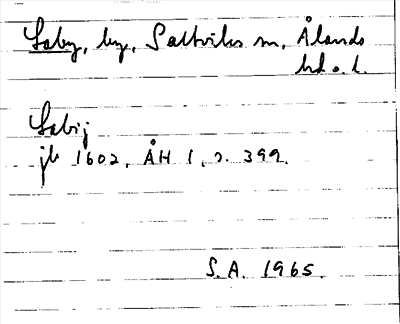 Saby, by, Saltviks sn, Ålands
hd o. l.
Sabij
jb 1602, ÅH 1, s. 399.
S.A. 1965.